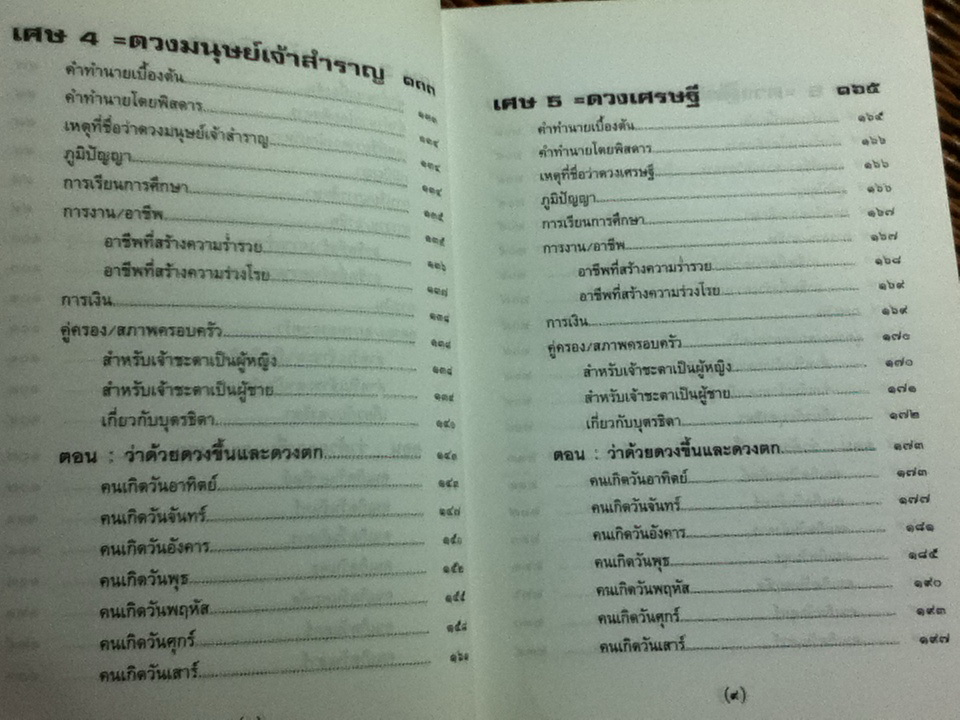 เศษ 4 =ดวงมนุษย์เจ้าสำราญ ๑๓๓
คำทำนายเบื้องต้น
คำทำนายโดยพิสดาร ๑๓๓
เหตุที่ชื่อว่าดวงมนุษย์เจ้าสำราญ ๑๓๔
ภูมิปัญญา ๑๓๔
การเรียนการศึกษา ๑๓๔
การงาน/อาชีพ ๑๓๕
อาชีพที่สร้างความร่ำรวย ๑๓๕
อาชีพที่สร้างความร่วงโรย ๑๓๖
การเงิน ๑๓๗
คู่ครอง/สภาพครอบครัว ๑๓๘
สำหรับเจ้าชะตาเป็นผู้หญิง ๑๓๘
สำหรับเจ้าชะตาเป็นผู้ชาย ๑๓๙
เกี่ยวกับบุตรธิดา ๑๔๑
ตอน : ว่าด้วยดวงขึ้นและดวงตก
คนเกิดวันอาทิตย์ ๑๔๓
คนเกิดวันจันทร์ ๑๔๗
คนเกิดวันอังคาร
คนเกิดวันพุธ ๑๕๒
คนเกิดวันพฤหัส ๑๕๕
คนเกิดวันศุกร์ ๑๕๘
คนเกิดวันเสาร์
เศษ 5 =ดวงเศรษฐี ๑๖๕
คำทำนายเบื้องต้น ๑๖๕
คำทำนายโดยพิสดาร ๑๖๖
เหตุที่ชื่อว่าดวงเศรษฐี ๑๖๖
ภูมิปัญญา ๑๖๖
การเรียนการศึกษา ๑๖๗
การงาน/อาชีพ ๑๖๗
อาชีพที่สร้างความร่ำรวย ๑๖๘
อาชีพที่สร้างความร่วงโรย ๑๖๙
การเงิน ๑๖๙
คู่ครอง/สภาพครอบครัว ๑๗๐
สำหรับเจ้าชะตาเป็นผู้หญิง ๑๗๐
สำหรับเจ้าชะตาเป็นผู้ชาย ๑๗๑
เกี่ยวกับบุตรธิดา ๑๗๒
ตอน : ว่าด้วยดวงขึ้นและดวงตก ๑๗๓
คนเกิดวันอาทิตย์ ๑๗๓
คนเกิดวันจันทร์ ๑๗๗
คนเกิดวันอังคาร ๑๘๑
คนเกิดวันพุธ ๑๘๕
คนเกิดวันพฤหัส ๑๙๐
คนเกิดวันศุกร์ ๑๙๓
คนเกิดวันเสาร์ ๑๙๗
(๙)